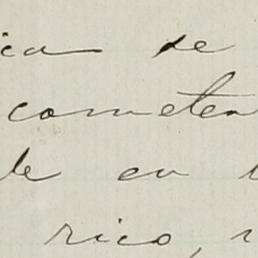 ica de
cometen
de en l
rico,